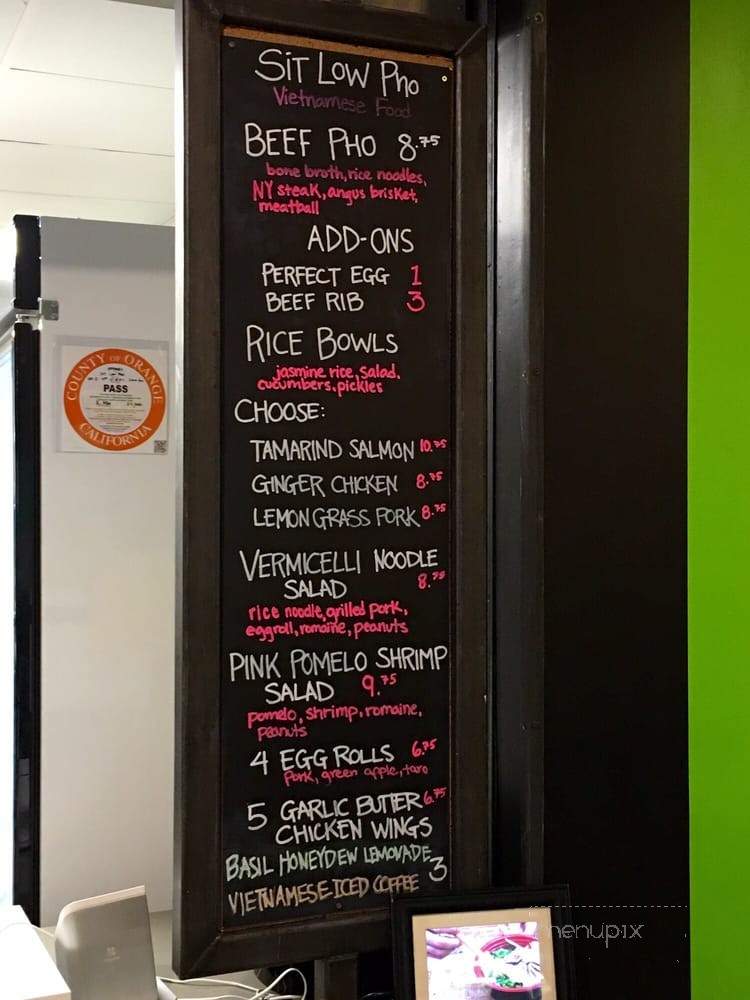 SIT LOW PHO
Vietnamese Food
BEEF PHO 8.75
bone broth, rice noodles,
NY steak, angus brisket,
meatball
ADD-ONS
PERFECT EGG 1
BEEF RIB 3
RICE BOWLS
jasmine rice, salad,
cucumbers, pickles
CHOOSE:
TAMARIND SALMON 10.75
GINGER CHICKEN 8.75
LEMONGRASS PORK 8.75
VERMICELLI NOODLE
SALAD 8.75
rice noodle, grilled pork,
eggroll, romaine, peanuts
PINK POMELO SHRIMP
SALAD 9.75
pomelo, shrimp, romaine,
peanuts
4 EGG ROLLS 6.75
pork, green apple, taro
5 GARLIC BUTTER 6.75
CHICKEN WINGS
BASIL HONEYDEW LEMONADE 3
VIETNAMESE ICED COFFEE
COUNTY OF ORANGE
PASS
CALIFORNIA
menupix